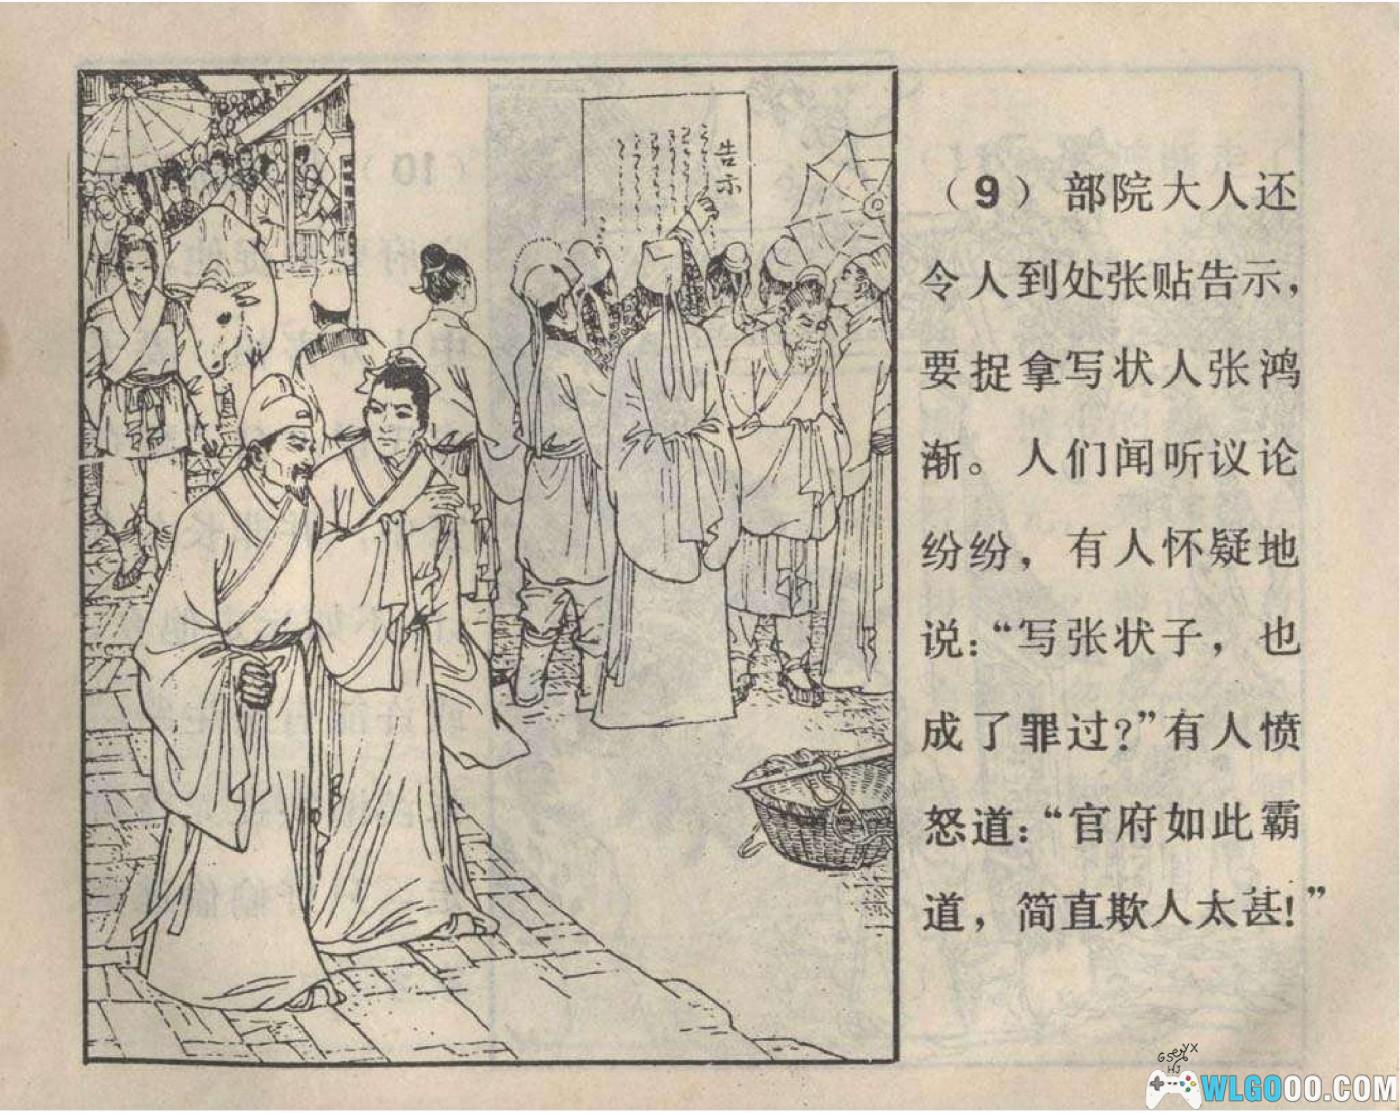 告示
（9）部院大人还
令人到处张贴告示，
要捉拿写状人张鸿
渐。人们闻听议论
纷纷，有人怀疑地
说：“写张状子，也
成了罪过？”有人愤
怒道：“官府如此霸
道，简直欺人太甚！”
WLGOOO.COM